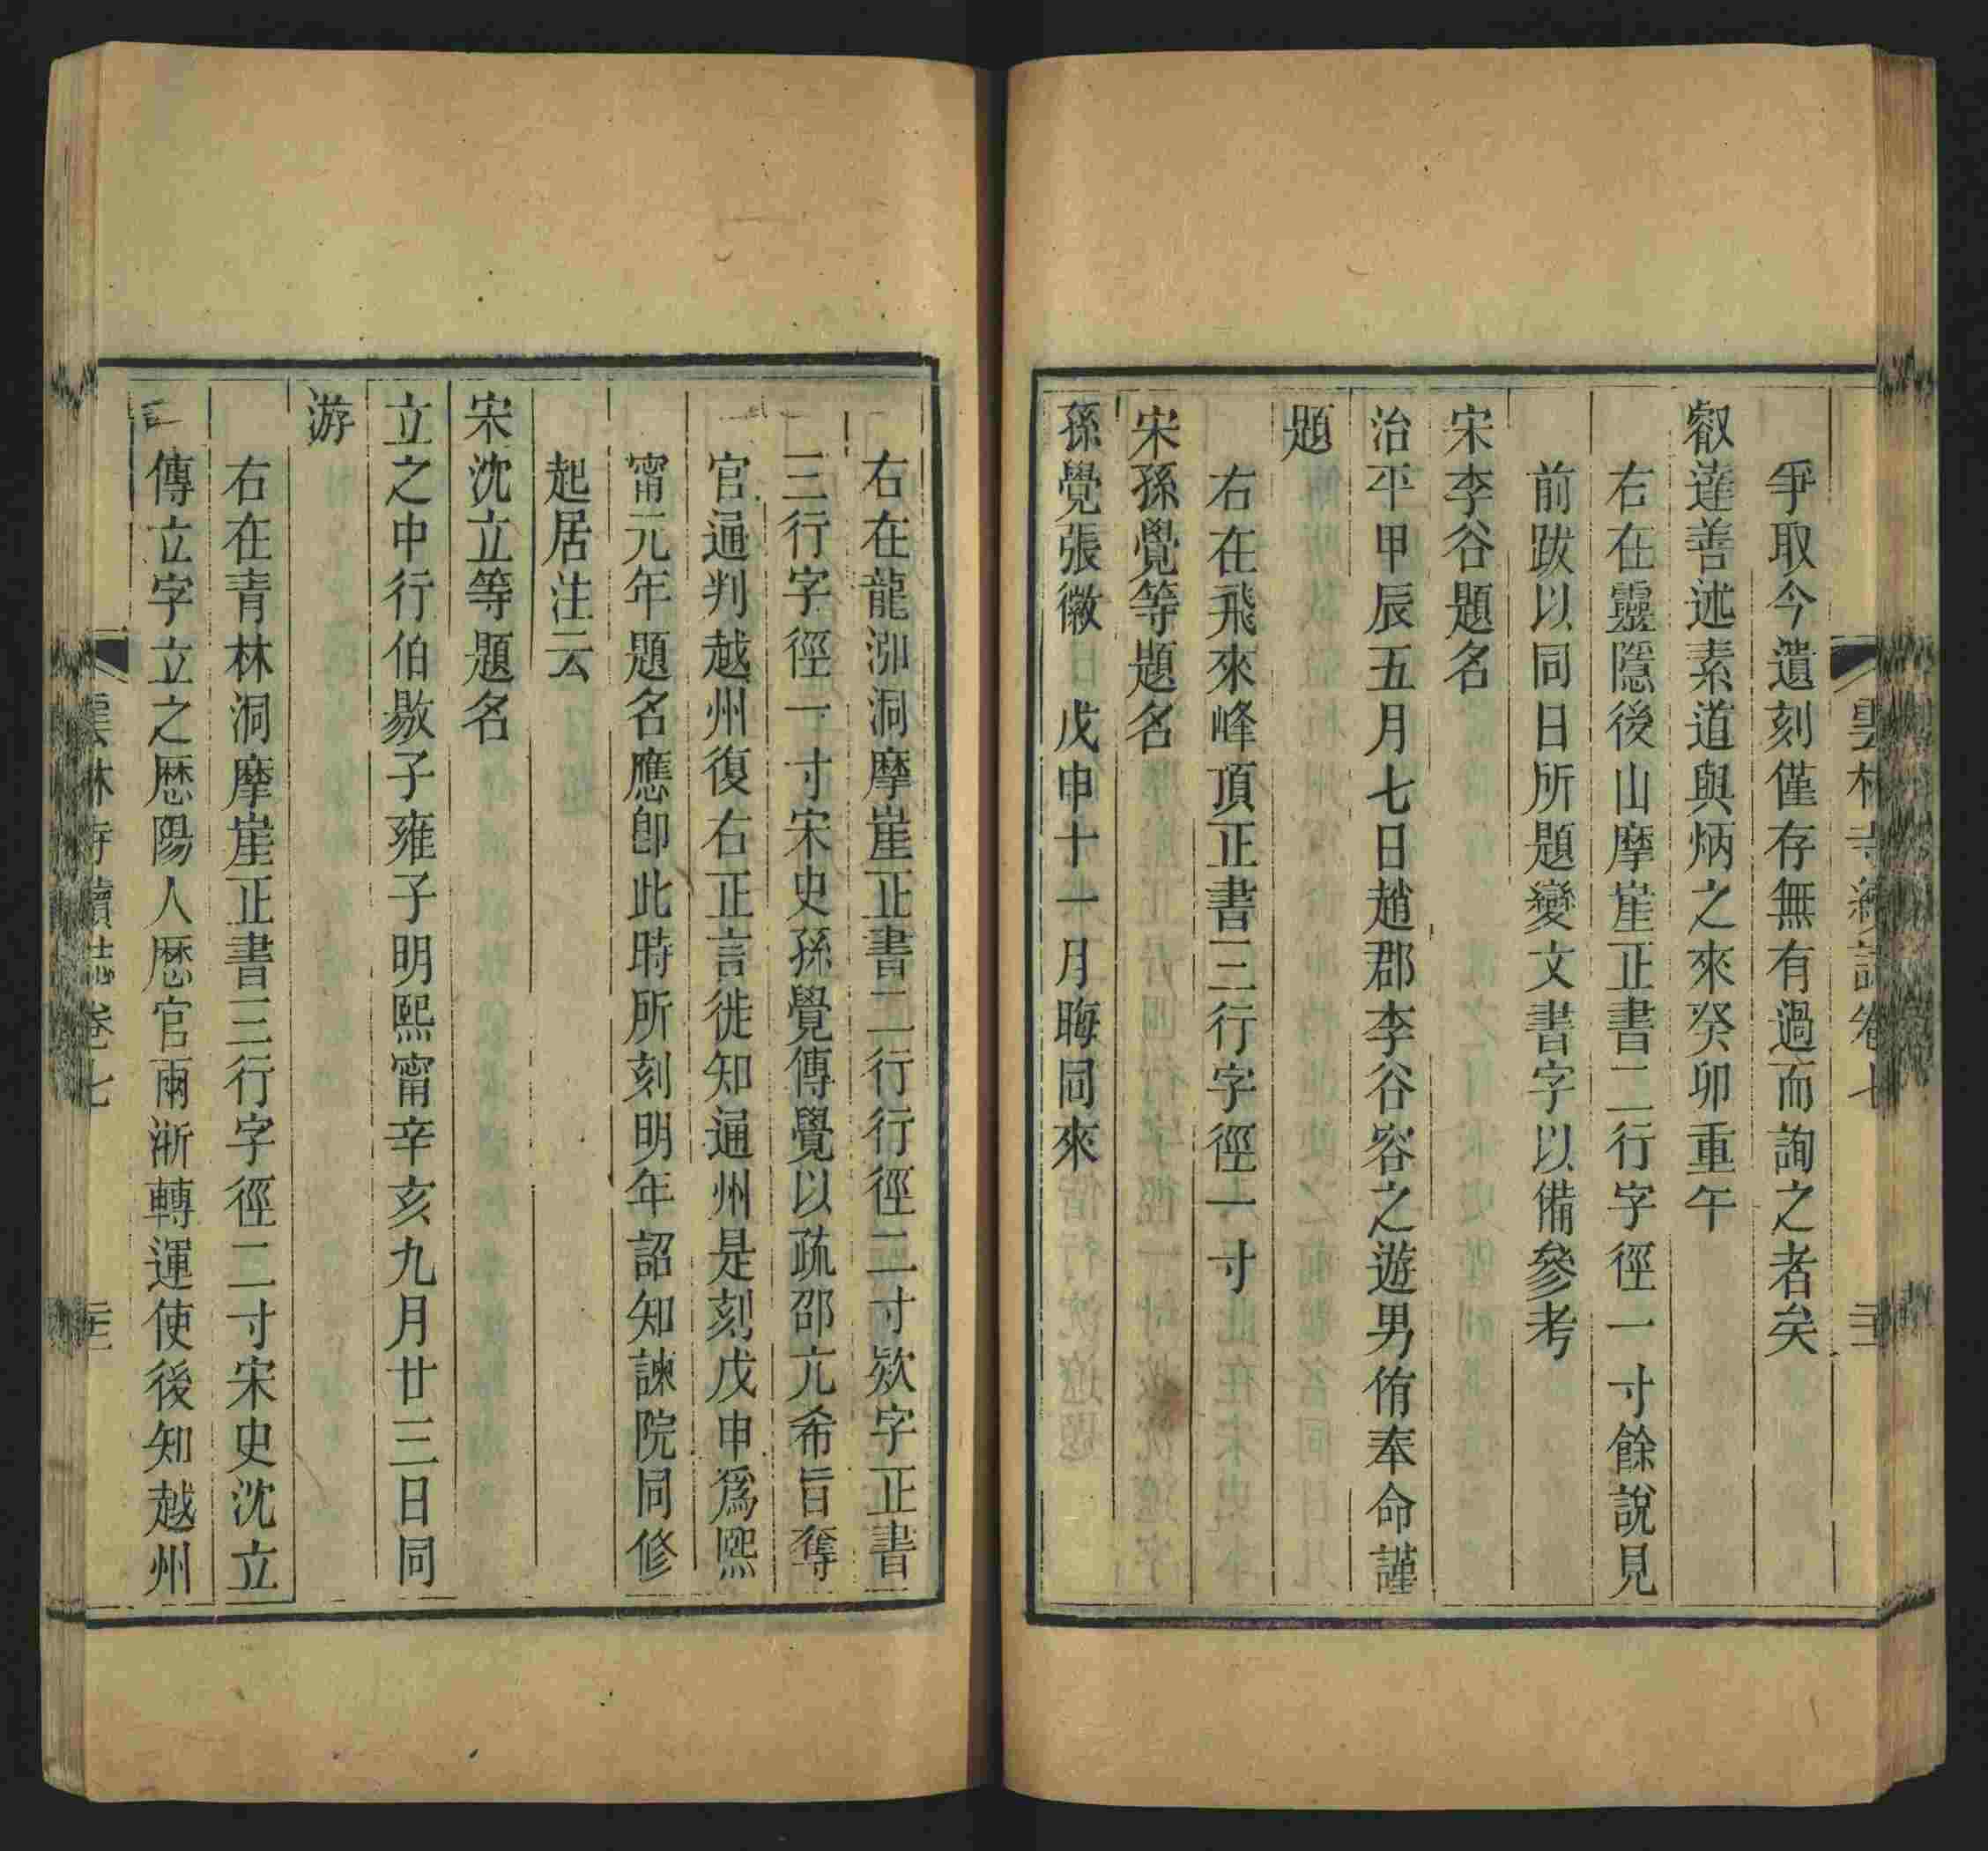 爭取今遺刻僅存無有過而詢之者矣
叡達善述素道與炳之來癸卯重午
右在靈隱後山摩崖正書二行字徑一寸餘說見
前跋以同日所題變文書字以備參考
宋李谷題名
治平甲辰五月七日趙郡李谷容之遊男侑奉命謹
題
右在飛來峰頂正書三行字徑一寸
宋孫覺等題名
孫覺張徽戊申十一月晦同來
右在龍泓洞摩崖正書二行行徑二寸欵字正書
三行字徑一寸宋史孫覺傳覺以疏邵亢希旨奪
官通判越州復右正言徙知通州是刻戊申爲熙
甯元年題名應卽此時所刻明年詔知諫院同修
起居注云
宋沈立等題名
立之中行伯敭子雍子明熙甯辛亥九月廿三日同
游
右在青林洞摩崖正書三行字徑二寸宋史沈立
傳立字立之歷陽人歷官兩浙轉運使後知越州
雲林寺續誌卷七